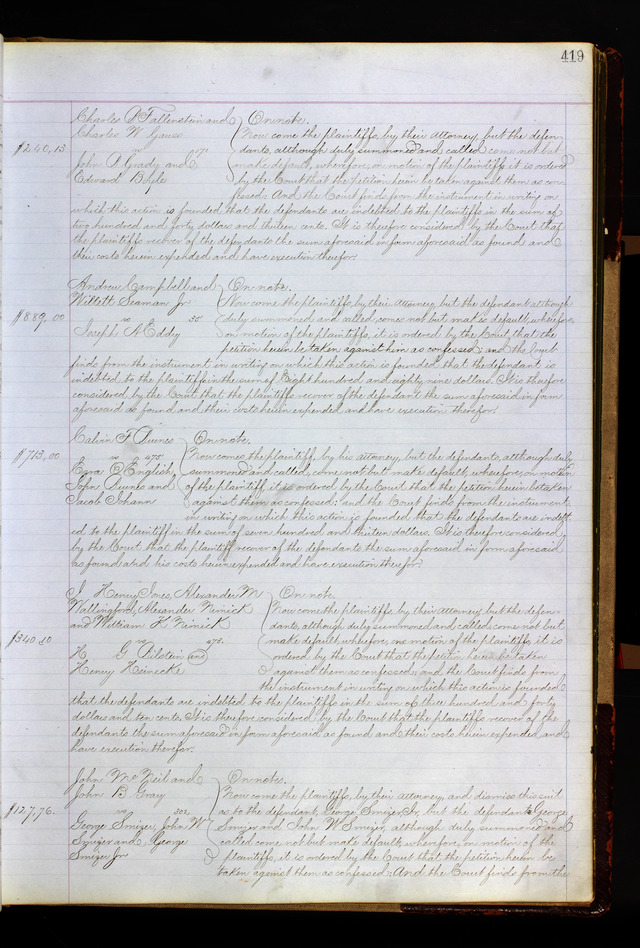 419
Charles D Fallenstein and } On note.
Charles W Gauss Now come the plaintiffs, by their attorney, but the defen-
$240,13 vs 271 dants, although duly summoned and called come not but
John A Grady and make default, wherefore, on motion of the plaintiffs it is ordered
Edward by the Court that the petition herein be taken against them as con-
fessed: And the Court finds from the instrument in writing on
which this action is founded that the defendants are indebted to the plaintiffs in the sum of
two hundred and forty dollars and thirteen cents. It is therefore considered by the Court that
the plaintiffs recover of the defendants the sum aforesaid in form aforesaid as found and
their costs herein expended and have execution therefor.
Andrew Campbell and } On note.
Willett Seaman Jr Now come the plaintiffs, by their attorney, but the defendant although
$889,00 vs 55 duly summoned and called, comes not but makes default, wherefore,
Joseph A Eddy on motion of the plaintiffs, it is ordered by the Court that the
petition herein be taken against him as confessed; and the Court
finds from the instrument in writing on which this action is founded that the defendant is
indebted to the plaintiffs in the sum of Eight hundred and eighty nine dollars. It is therefore
considered by the Court that the plaintiffs recover of the defendant the sum aforesaid in form
aforesaid as found and their costs herein expended and have execution therefor.
Calvin F } On note.
$713,00 vs 475 Now comes the plaintiff, by his attorney, but the defendants, although duly
Ezra English, summoned and called, come not but make default, wherefore, on motion
John and of the plaintiff it is ordered by the Court that the petition herein be taken
Jacob Johann against them as confessed: and the Court finds from the instrument
in writing on which this action is founded that the defendants are indebt-
ed to the plaintiff in the sum of seven hundred and thirteen dollars. It is therefore considered
by the Court that the plaintiff recover of the defendants the sum aforesaid in form aforesaid
as found and his costs herein expended and have execution therefor.
J Henry Jones, Alexander M } On note.
Wallingford, Alexander Nimick Now come the plaintiffs, by their attorney, but the defen-
and William K Nimick dants, although duly summoned and called come not but
$340.10 vs 478. make default wherefore, on motion of the plaintiffs, it is
H G Pilstein and ordered by the Court that the petition herein be taken
Henry Heinecke against them as confessed; and the Court finds from
the instrument in writing on which this action is founded
that the defendants are indebted to the plaintiffs in the sum of three hundred and forty
dollars and ten cents. It is therefore considered by the Court that the plaintiffs recover of the
defendants the sum aforesaid in form aforesaid as found and their costs herein expended and
have execution therefor.
John McNeil and } On notes.
John B Gray Now come the plaintiffs, by their attorney, and dismiss this suit
$127,76. vs 302 as to the defendant, George Smizer Jr, but the defendants George
George Smizer, John W Smizer and John W Smizer, although duly summoned and
Smizer and George called come not but make default, wherefore, on motion of the
Smizer Jr plaintiffs, it is ordered by the Court that the petition herein be
taken against them as confessed; And the Court finds from the